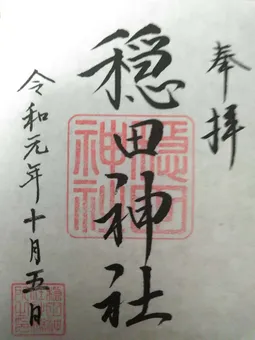 奉拝
穏田神社
隠田神社
令和元年十月五日